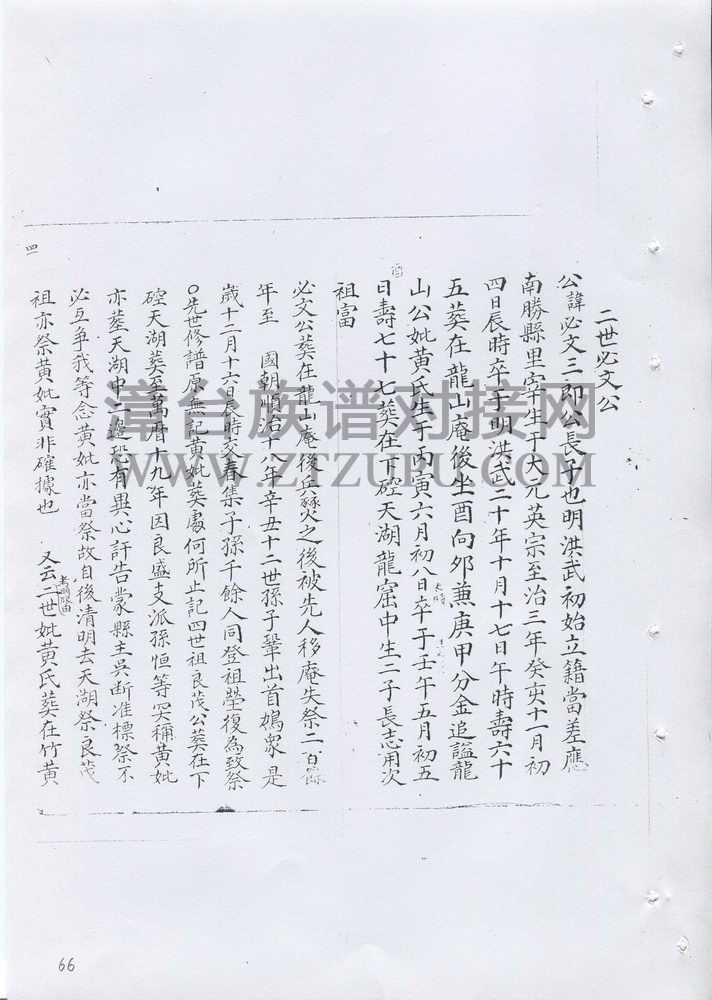 二世必文公
公諱必文三郎公長子也明洪武初始立籍當差應
南勝縣里宰生于大元英宗至治三年癸亥十一月初
四日辰時卒于明洪武二十年十月十七日午時壽六十
五葬在龍山庵後坐酉向夘兼庚甲分金追謚龍
山公妣黃氏生于丙寅六月初八卒于壬午五月初五
日壽七十七葬在下硿天湖龍窟中生二子長志用次
酉
祖富
必文公葬在龍山庵後兵燹之後被先人移庵失祭二百餘
年至 國朝順治十八年辛丑十二世孫子鞏出首鳩衆是
歲十二月十六日辰時交春集子孫千餘人同登祖塋復為致祭
○先世修譜原無記黃妣葬處何所止記四世祖良茂公葬在下
硿天湖葬至萬曆十九年因良盛支派孫恒等哭稱黃妣
亦塟天湖中二邊恐有異心訐告蒙縣主吳断准標祭不
必互争我等念黃妣亦當祭故自後清明去天湖祭良茂
祖亦祭黃妣實非確據也 又云二世妣黃氏葬在竹黃
四
漳台族谱对接网
WWW.ZTZUPU.COM
66